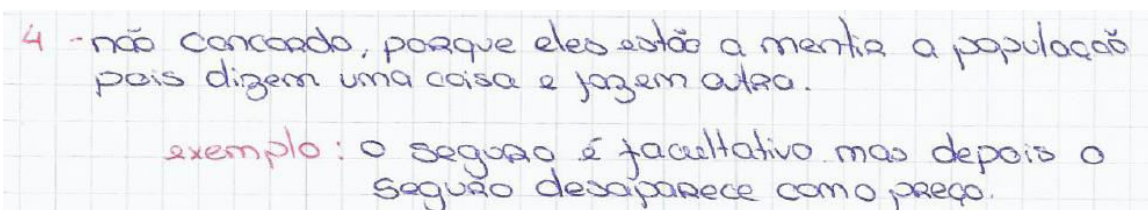 4 - não concordo, porque eles estão a mentir a população
pois dizem uma coisa e fazem outra.
exemplo: o seguro é facultativo mas depois o
seguro desaparece como preço.